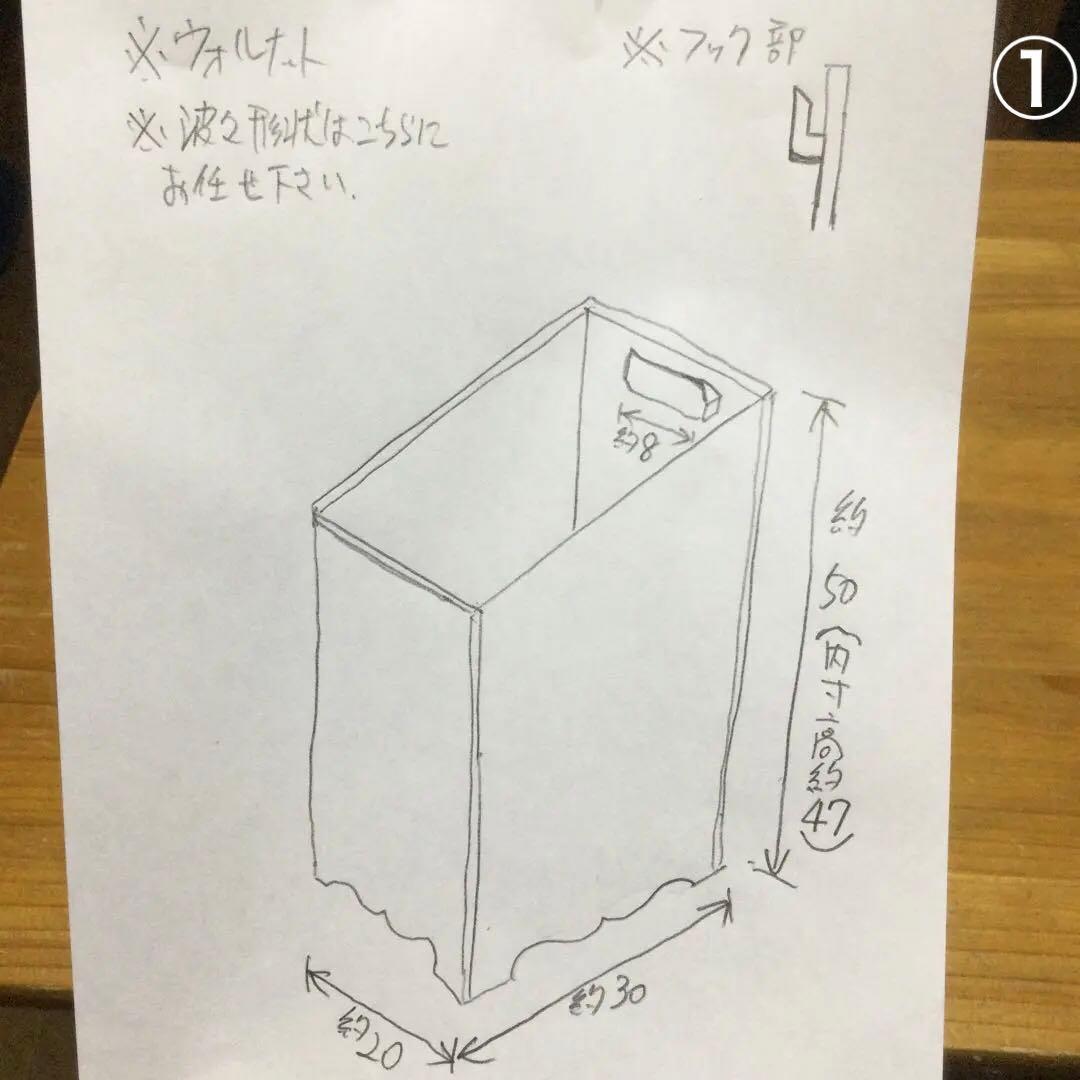 ※ウォルナット
※波々形状はこちらに
お任せ下さい.
※フック部
①
約8
約50(内寸高約47)
約30
約20